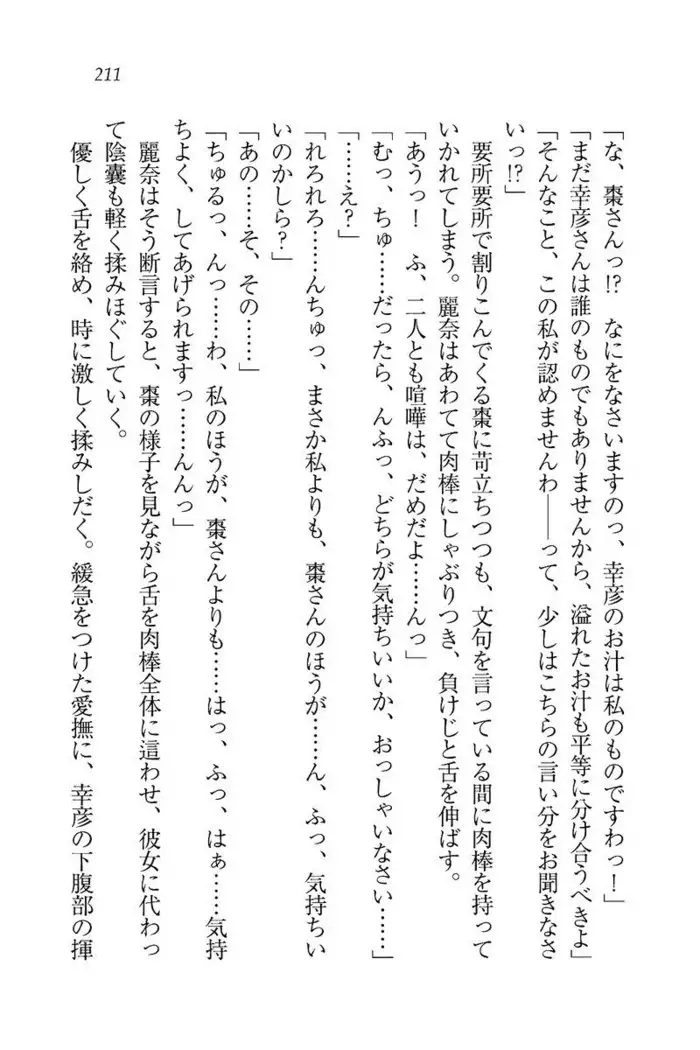 211
「な、棗さんっ!?　なにをなさいますのっ、幸彦のお汁は私のものですわっ！」
「まだ幸彦さんは誰のものでもありませんから、溢れたお汁も平等に分け合うべきよ」
「そんなこと、この私が認めませんわ――って、少しはこちらの言い分をお聞きなさ
いっ!?」
　要所要所で割りこんでくる棗に苛立ちつつも、文句を言っている間に肉棒を持って
いかれてしまう。麗奈はあわてて肉棒にしゃぶりつき、負けじと舌を伸ばす。
「あうっ！　ふ、二人とも喧嘩は、だめだよ……んっ」
「むっ、ちゅ……だったら、んふっ、どちらが気持ちいいか、おっしゃいなさい……」
「……え？」
「れろれろ……んちゅっ、まさか私よりも、棗さんのほうが……ん、ふっ、気持ちい
いのかしら？」
「あの……そ、その……」
「ちゅるっ、んっ……わ、私のほうが、棗さんよりも……はっ、ふっ、はぁ……気持
ちよく、してあげられますっ……んんっ」
　麗奈はそう断言すると、棗の様子を見ながら舌を肉棒全体に這わせ、彼女に代わっ
て陰嚢も軽く揉みほぐしていく。
　優しく舌を絡め、時に激しく揉みしだく。緩急をつけた愛撫に、幸彦の下腹部の揮